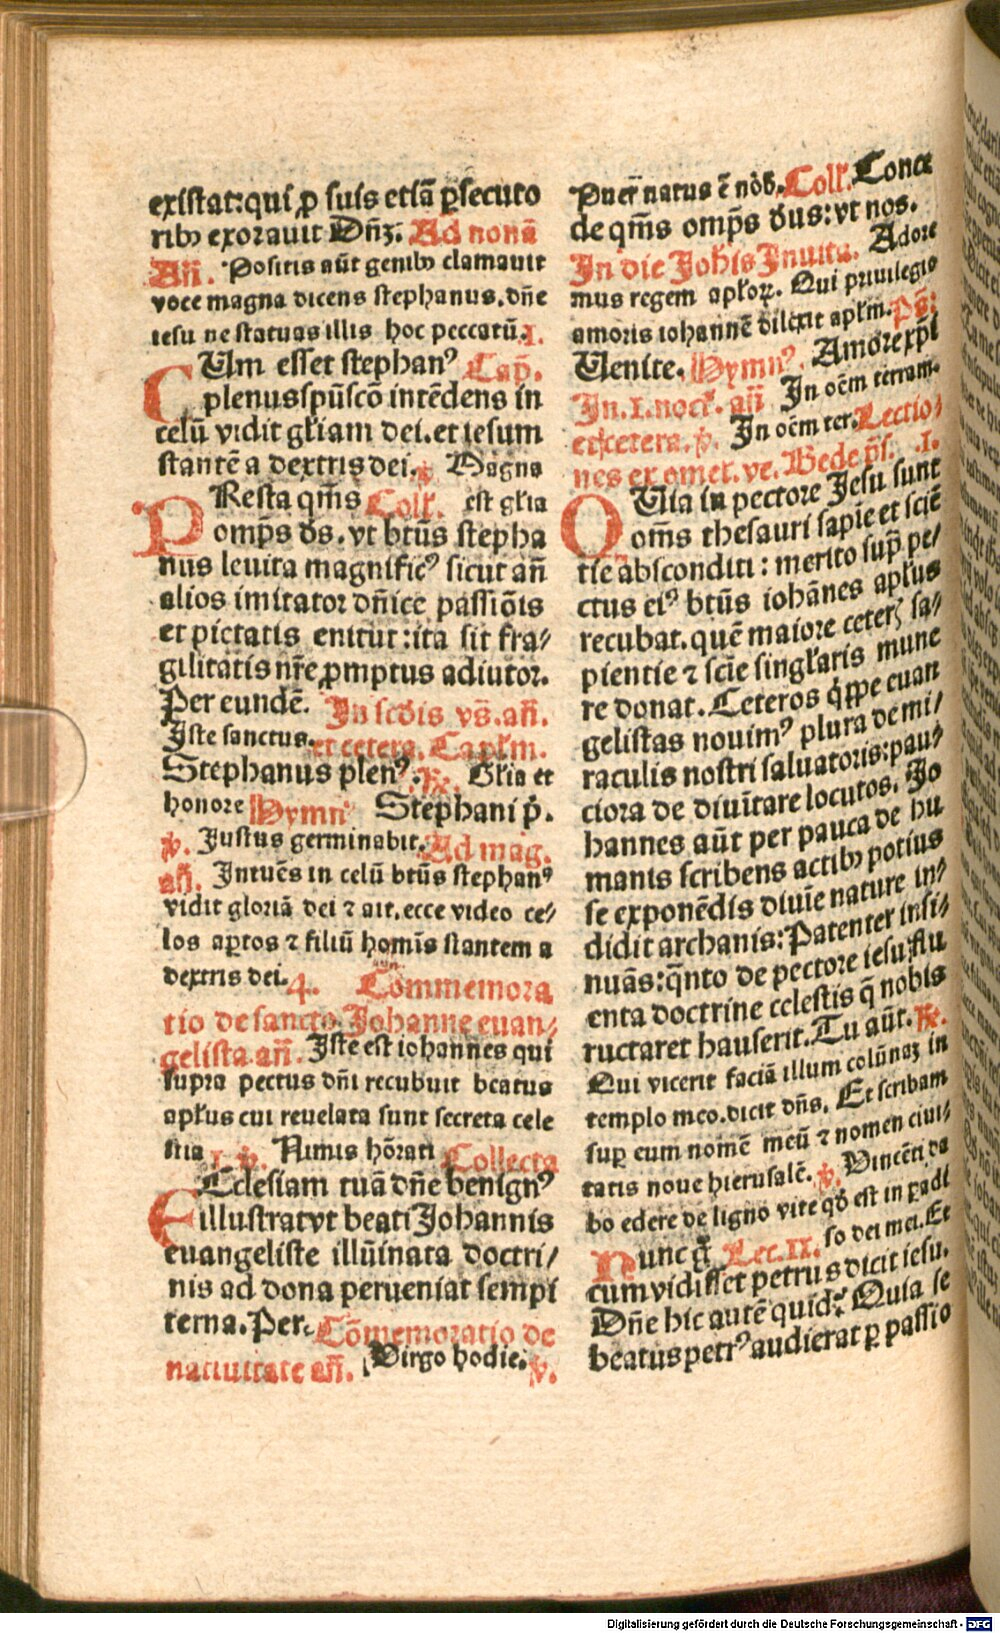 existat:qui ꝓ suis etiā ꝑsecuto
ribꝰ exorauit Dñꝫ. Ad nonā
Añ. Positis aūt genibꝰ clamauit
voce magna dicens stephanus. dñe
iesu ne statuas illis hoc peccatū. 1.
CUm esset stephanꝰ Cap̄.
plenus spūscō intēdens in
celū vidit gl'iam dei. et iesum
stantē a dextris dei. ꝟ Magna
PResta qm̄s Coll'. est gl'ia
omp̄s ds̄. vt btūs stepha
nus leuita magnificꝰ sicut añ
alios imitator dñice passiōis
et pietatis enitut: ita sit fra/
gilitatis nr̄e ꝓmptus adiutor.
Per eundē. In scdis vs̄. añ.
Iste sanctus. et cetera. Capl'm.
Stephanus plenꝰ. ℞. Gl'ia et
honore Hymnꝰ Stephani p̄.
ꝟ. Iustus germinabit. Ad mag.
añ. Intuēs in celū btūs stephanꝰ
vidit gloriā dei ⁊ ait. ecce video ce/
los aꝑtos ⁊ filiū homīs stantem a
dextris dei. 4. Commemora
tio de sancto Johanne euan/
gelista añ. Iste est iohannes qui
supra pectus dñi recubuit beatus
apl'us cui reuelata sunt secreta cele
stia 1. ꝟ. Nimis hōrati Collecta
EEclesiam tuā dñe benignꝰ
illustra vt beati Johannis
euangeliste illūinata doctri/
nis ad dona perueniat sempi
terna. Per. Cōmemoratio de
natiuitate añ. Virgo hodie. ꝟ.
Puer natus ē nōb. Coll'. Conce
de qm̄s omp̄s ds̄us: vt nos.
In die Joh̄is Inuita. Adore
mus regem apl'oꝝ. Qui priuilegio
amoris iohannē dilexit apl'm. Ps̄:
Uenite. Hymnꝰ. Amore xp̄i
In. 1. noct'. añ In oēm terram.
et cetera. ꝟ. In oēm ter. Lectio/
nes ex omel. ve. Bede p̄s. .I.
QUia in pectore Jesu sunt
oms̄ thesauri sapīe et sciē
tie absconditi: merito sup̄ pe/
ctus eiꝰ btūs iohānes apl'us
recubat. quē maiore ceterꝭ sa/
pientie ⁊ sciē singl'aris mune
re donat. Ceteros q̇ꝑpe euan
gelistas nouimꝰ plura de mi/
raculis nostri saluatoris: pau/
ciora de diuītate locutos. Jo
hannes aūt per pauca de hu
manis scribens actibꝰ potius
se exponēdis diuīe nature in/
didit archanis: Patenter insi/
nuās: q̄nto de pectore iesu: flu
enta doctrine celestis q̄ nobis
ructaret hauserit. Tu aūt. ℞.
Qui vicerit faciā illum colūnaꝫ in
templo meo. dicit dñs. Et scribam
suꝑ eum nomē meū ⁊ nomen ciui/
tatis noue hierusalē. ꝟ. Vincēti da
bo edere de ligno vite qd̄ est in ꝑadi
Nunc g̊ Lec. II. so dei mei. Et
cum vidisset petrus dicit iesu.
Dñe hic autē quid: Quia se
beatus petrꝰ audierat ꝑ passio
Digitalisierung gefördert durch die Deutsche Forschungsgemeinschaft - DFG